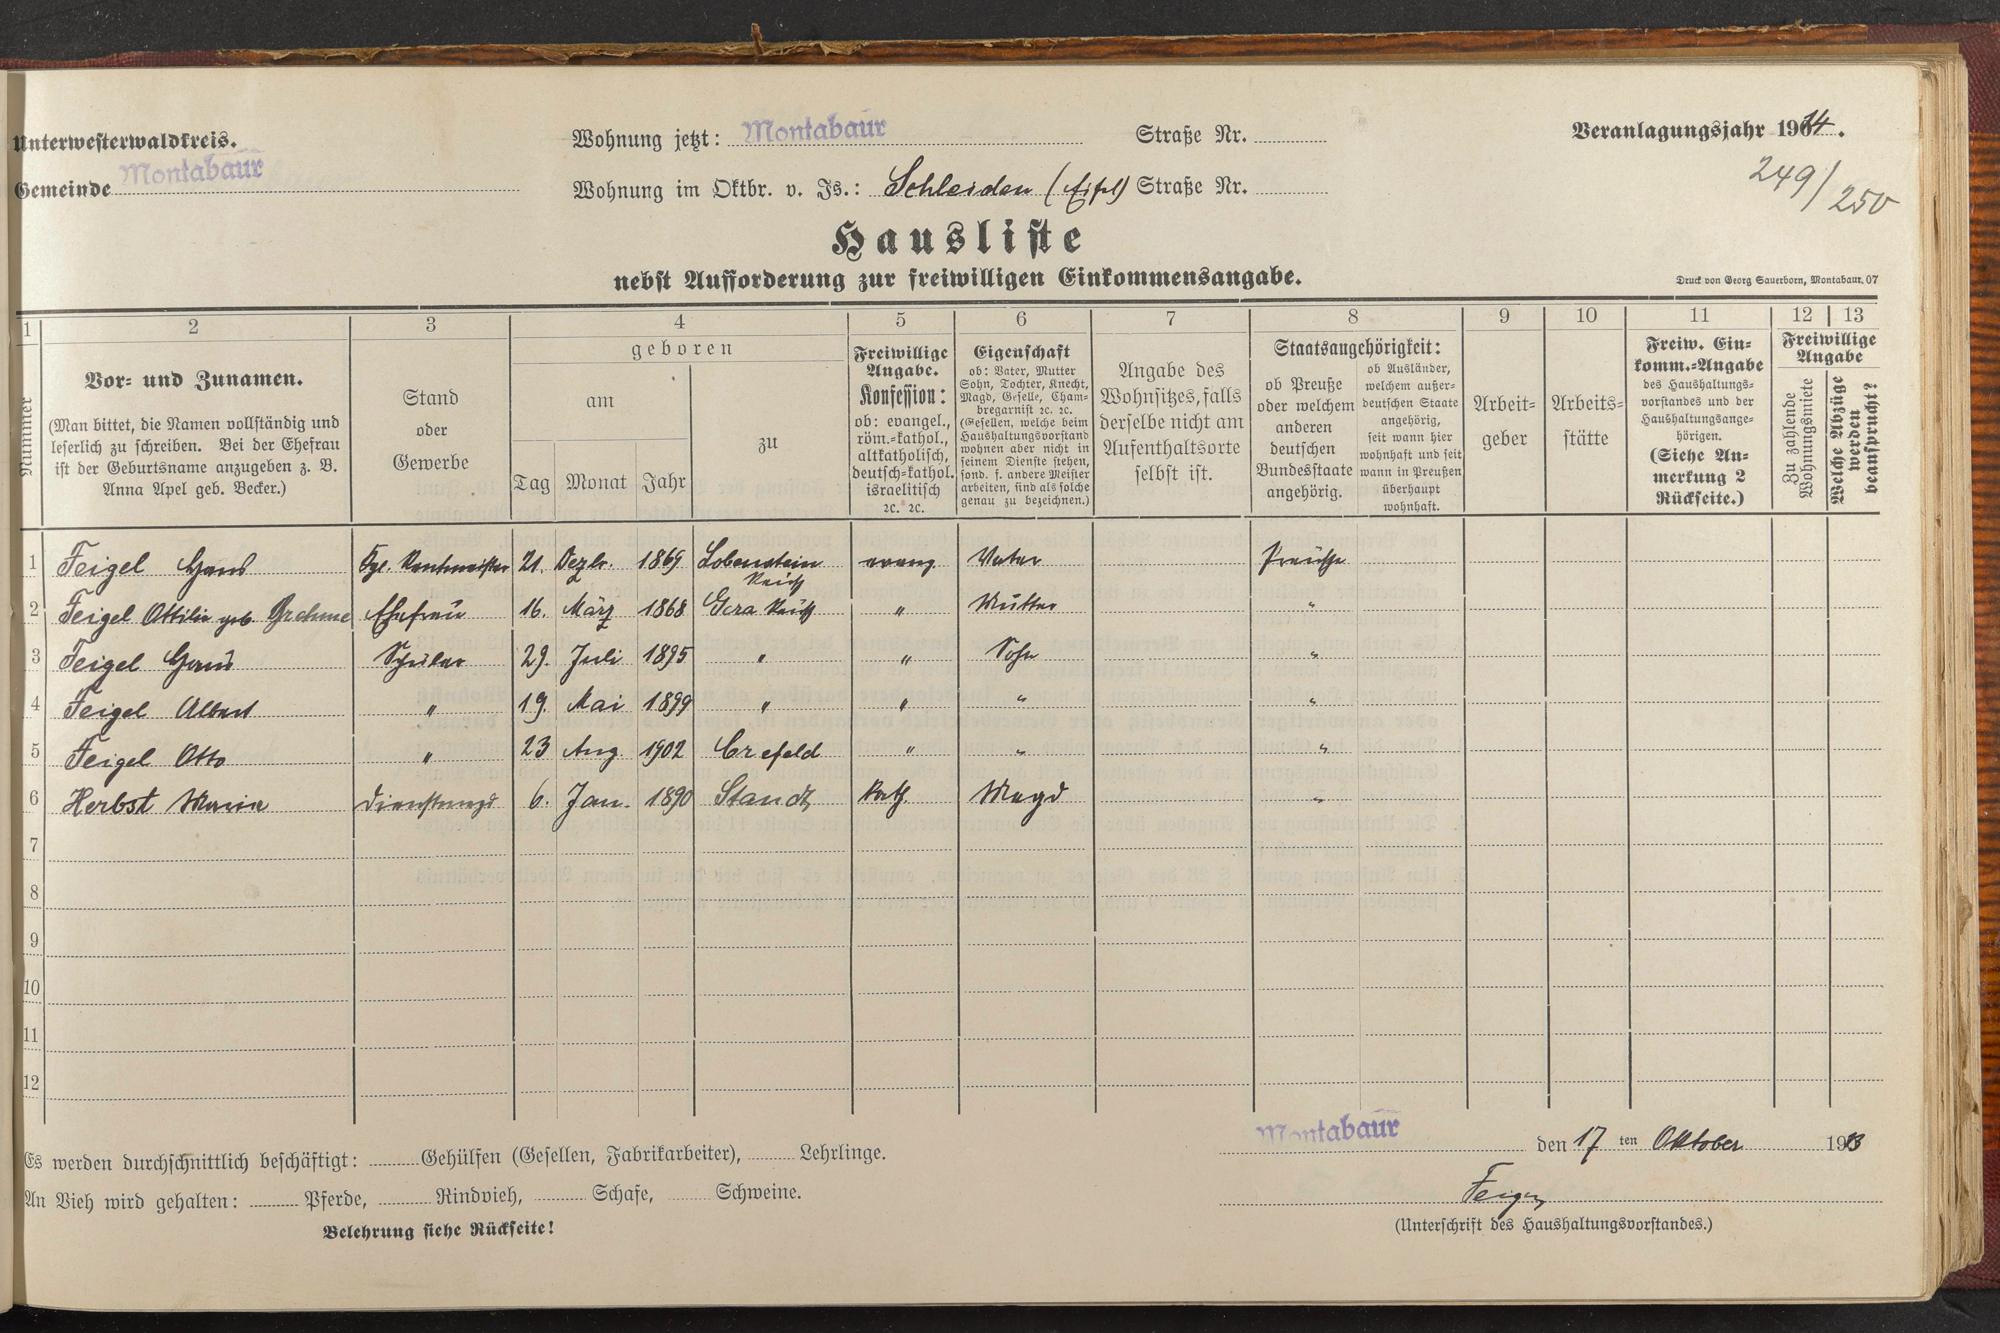 Unterwesterwaldkreis.
Gemeinde Montabaur
Wohnung jetzt: Montabaur Straße Nr.
Wohnung im Oktbr. v. Js.: Schleiden (Eifel) Straße Nr.
Veranlagungsjahr 1914.
249/250
Hausliste
nebst Aufforderung zur freiwilligen Einkommensangabe.
Druck von Georg Sauerborn, Montabaur. 07
1 2 3 4 5 6 7 8 9 10 11 12 13
Nummer
Vor- und Zunamen.
(Man bittet, die Namen vollständig und
leserlich zu schreiben. Bei der Ehefrau
ist der Geburtsname anzugeben z. B.
Anna Apel geb. Becker.)
Stand
oder
Gewerbe
geboren
am
Tag Monat Jahr
zu
Freiwillige
Angabe.
Konfession:
ob: evangel.,
röm.-kathol.,
altkatholisch,
deutsch-kathol.
israelitisch
ꝛc. ꝛc.
Eigenschaft
ob: Vater, Mutter
Sohn, Tochter, Knecht,
Magd, Geselle, Cham-
bregarnist ꝛc. ꝛc.
(Gesellen, welche beim
Haushaltungsvorstand
wohnen aber nicht in
seinem Dienste stehen,
sond. f. andere Meister
arbeiten, sind als solche
genau zu bezeichnen.)
Angabe des
Wohnsitzes, falls
derselbe nicht am
Aufenthaltsorte
selbst ist.
Staatsangehörigkeit:
ob Preuße
oder welchem
anderen
deutschen
Bundesstaate
angehörig.
ob Ausländer,
welchem außer-
deutschen Staate
angehörig,
seit wann hier
wohnhaft und seit
wann in Preußen
überhaupt
wohnhaft.
Arbeit-
geber
Arbeits-
stätte
Freiw. Ein-
komm.-Angabe
des Haushaltungs-
vorstandes und der
Haushaltungsange-
hörigen.
(Siehe An-
merkung 2
Rückseite.)
Freiwillige
Angabe
Zu zahlende
Wohnungsmiete
Welche Abzüge
werden
beansprucht?
1 Feigel Hans Kgl. Rentmeister 21. Dezbr. 1869 Lobenstein Reuß evang. Vater Preuße
2 Feigel Ottilie geb. Brehme Ehefrau 16. März 1868 Gera Reuß " Mutter "
3 Feigel Hans Schüler 29. Juli 1895 " " Sohn "
4 Feigel Albert " 19. Mai 1899 " " " "
5 Feigel Otto " 23 Aug. 1902 Crefeld " " "
6 Herbst Maria Dienstmagd 6. Jan. 1890 Staudt kath. Magd "
7
8
9
10
11
12
Es werden durchschnittlich beschäftigt: Gehülfen (Gesellen, Fabrikarbeiter), Lehrlinge.
An Vieh wird gehalten: Pferde, Rindvieh, Schafe, Schweine.
Belehrung siehe Rückseite!
Montabaur den 17 ten Oktober 1913
Feigel
(Unterschrift des Haushaltungsvorstandes.)